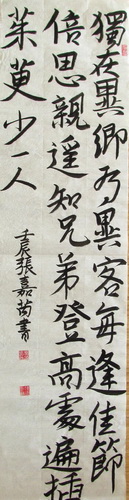 獨在異鄉为異客每逢佳節
倍思親遥知兄弟登高處遍插
茱萸少一人
壬辰張嘉苪書